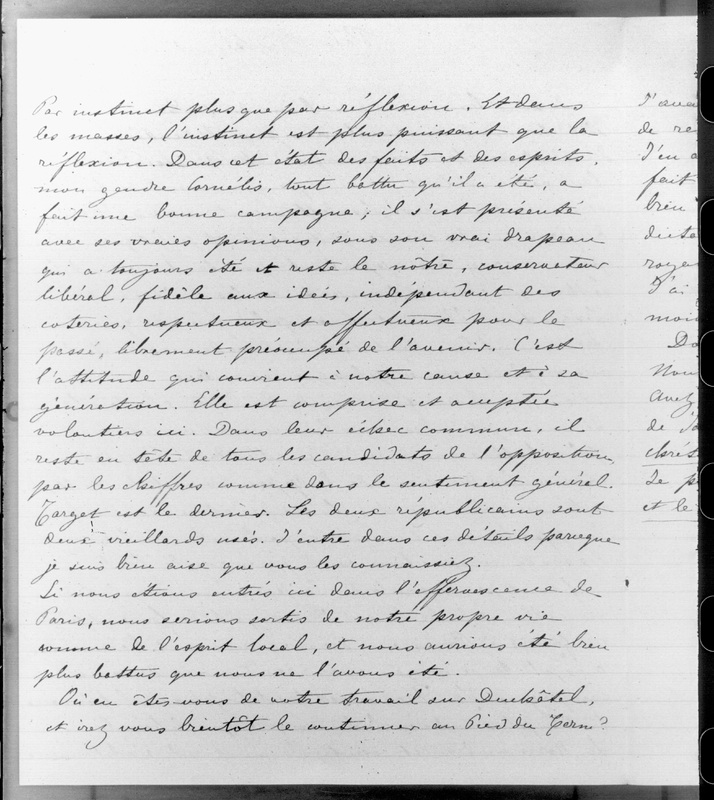 Par instinct plus que par réflexion. Et dans
les masses, l'instinct est plus puissant que la
réflexion. Dans cet état des faits et des esprits,
mon gendre Cornélis, tout battu qu'il a été, a
fait une bonne campagne ; il s'est présenté
avec ses vraies opinions, sous son vrai drapeau
qui a toujours été et reste le nôtre, conservateur
libéral, fidèle aux idées, indépendant des
coteries, respectueux et affectueux pour le
passé, librement préoccupé de l'avenir. C'est
l'attitude qui convient à notre cause et à sa
génération. Elle est comprise et acceptée
volontiers ici. Dans leur échec commun, il
reste en tête de tous les candidats de l'opposition,
par les chiffres comme dans le sentiment général.
Target est le dernier. Les deux républicains sont
deux vieillards usés. J'entre dans ces détails parceque
je suis bien aise que vous les connaissiez.
Si nous étions entrés ici dans l'effervescence de
Paris, nous serions sortis de notre propre vie
comme de l'esprit local, et nous aurions été bien
plus battus que nous ne l'avons été.
Où en êtes-vous de votre travail sur Duchâtel,
et irez vous bientôt le continuer au Pied du Terne?
J'avai
de re
J'en a
fait
bien
dicta
royau
J'ai
moin
Do
Nou
Avez
de
chrét
Je p
et le